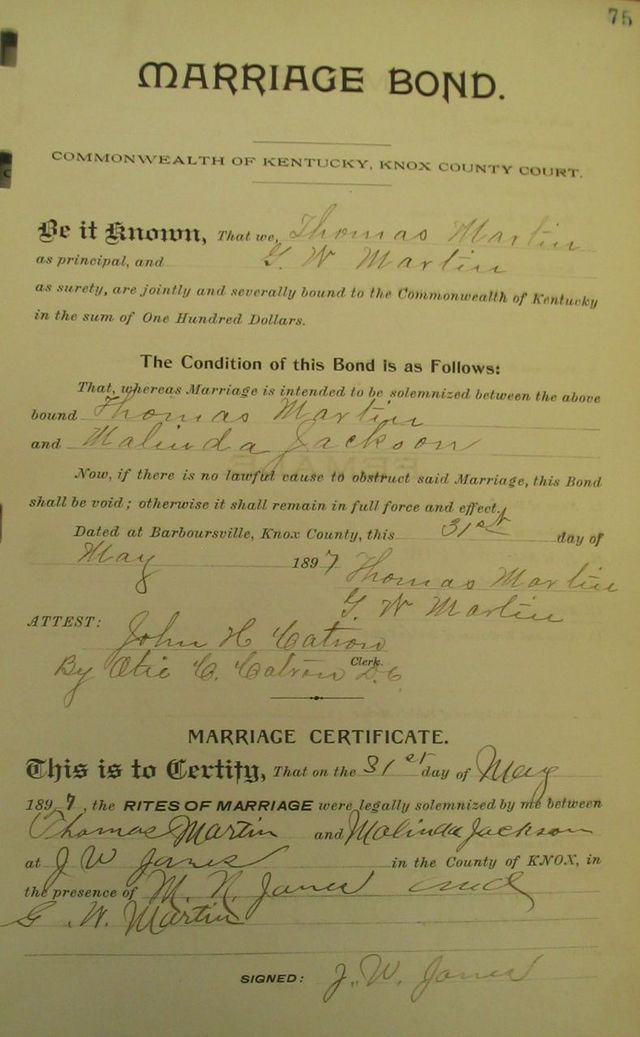 75
MARRIAGE BOND.
COMMONWEALTH OF KENTUCKY, KNOX COUNTY COURT.
Be it Known, That we, Thomas Martin
as principal, and G. W Martin
as surety, are jointly and severally bound to the Commonwealth of Kentucky
in the sum of One Hundred Dollars.
The Condition of this Bond is as Follows:
That, whereas Marriage is intended to be solemnized between the above
bound Thomas Martin
and Malinda Jackson
Now, if there is no lawful cause to obstruct said Marriage, this Bond
shall be void; otherwise it shall remain in full force and effect.
Dated at Barboursville, Knox County, this 31st day of
May 1897 Thomas Martin
G. W Martin
ATTEST:
John H Catron
Clerk.
By Otie C. Catron D.C.
MARRIAGE CERTIFICATE.
This is to Certify, That on the 31st day of May
1897, the RITES OF MARRIAGE were legally solemnized by me between
Thomas Martin and Malinda Jackson
at J W Jones in the County of KNOX, in
the presence of M. N. Jones and
G. W. Martin
SIGNED: J. W. Jones